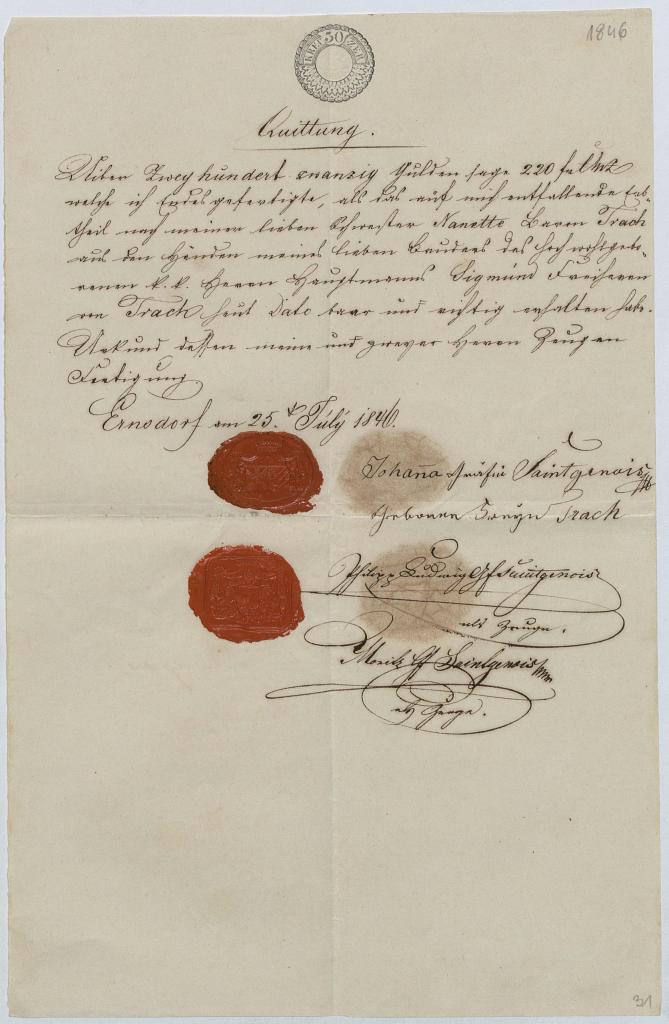 1846
50
KREUZER
Quittung.
Über Zwey hundert zwanzig Gulden sage 220 f CMz
welche ich Endesgefertigte, als das auf mich entfallende Erb-
theil nach meiner lieben Schwester Nanette Baron Trach
aus den Händen meines lieben Bruders des hochwohlgebo-
renen k. k. Herrn Hauptmanns Sigmund Freiherrn
von Trach heut Dato baar und richtig erhalten habe.
Urkund dessen meine und zweyer Herrn Zeugen
Fertigung
Ernsdorf am 25. July 1846.
Johana Gräfin Saintgenois
geborene Trach
Philipp Ludwig Gf Saintgenois
als Zeuge.
Moritz Gf Saintgenois
als Zeuge.
31